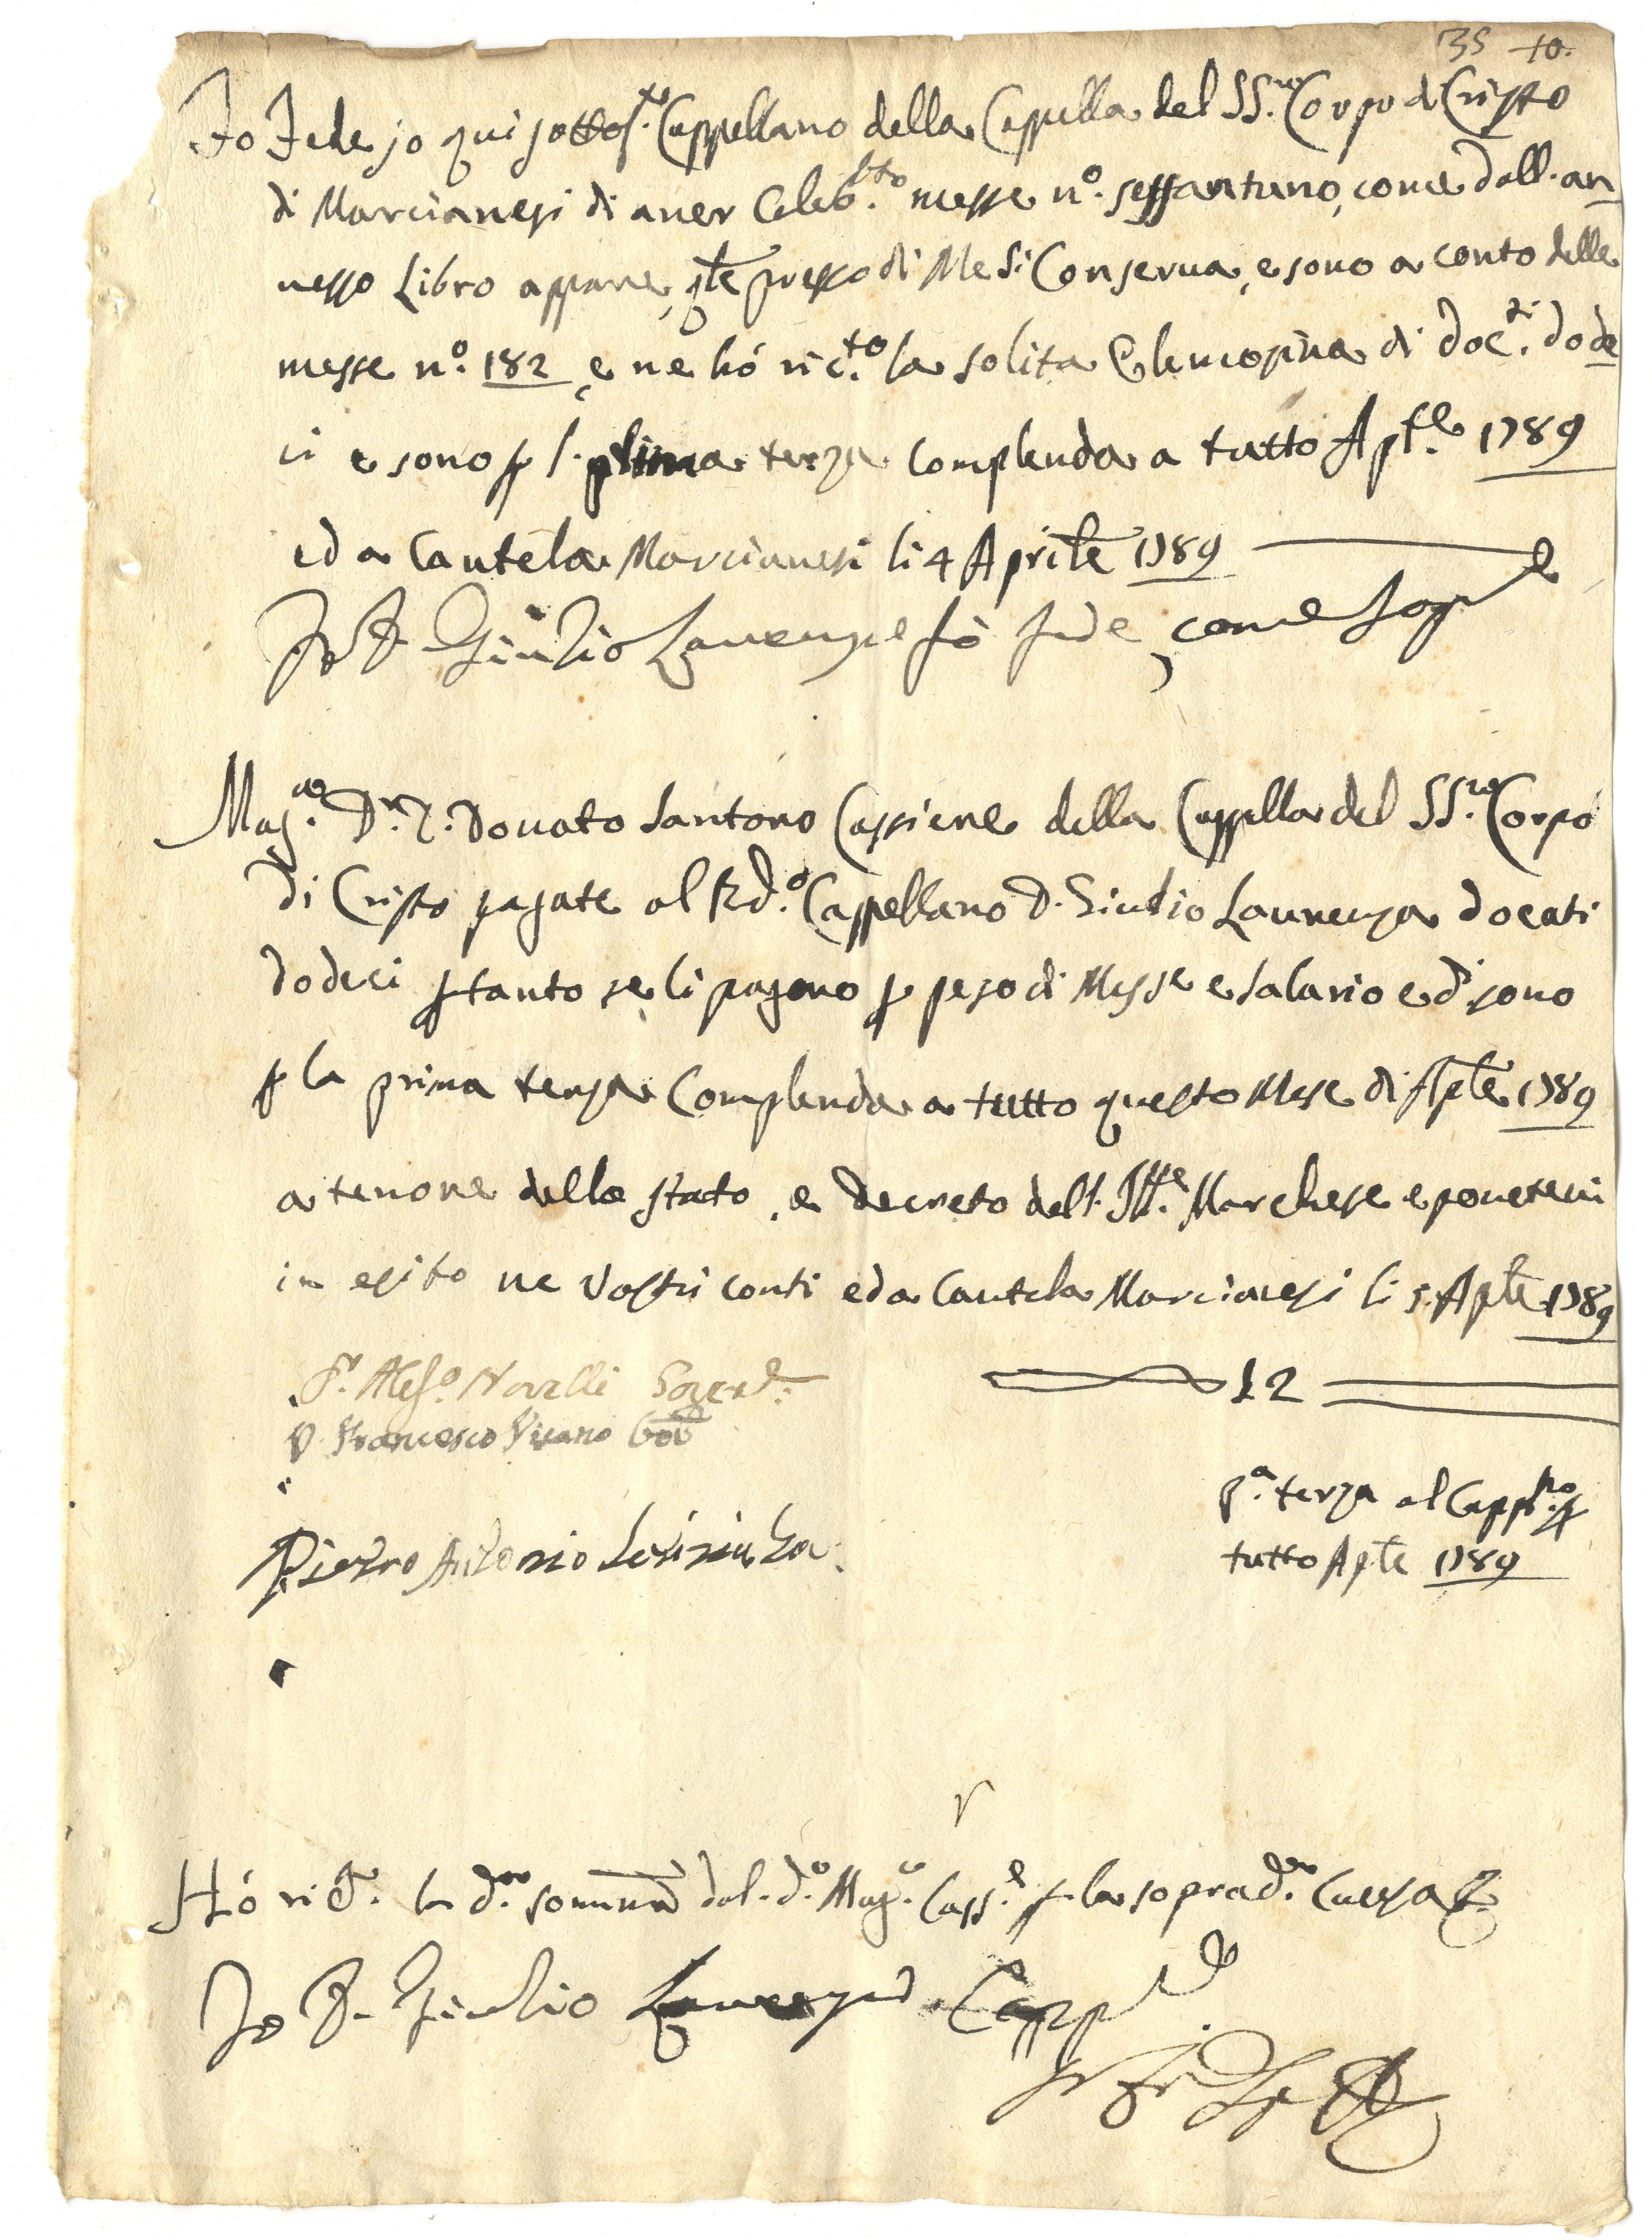 35 10.
Fo Fede io qui sottos.tto Cappellano della Cappella del SS.mo Corpo di Cristo
di Marcianesi di aver Celeb.tto messe n.o sessantuno, come dall. an
nesso Libro appare, q̃le presso di Me si Conserva, e sono a conto delle
messe n.o 182 e ne hó ric.to la solita Elemosina di doc.ti dode
ci e sono ꝑ l. prima terza complenda a tutto Ap̃le. 1789
ed a Cautela Marcianesi li 4 Aprile 1789
Io D. Giulio Laurenza fò fede, come sop.
Mag.co D.r D. Donato Santoro Cassiere della Cappella del SS.mo Corpo
di Cristo pagate al R.do Cappellano D. Giulio Laurenza docati
dodeci ꝑ tanto se li pagano ꝑ peso di Messe e salario ed sono
ꝑ la prima terza Complenda a tutto questo Mese di Ap̃le 1789
a tenore dello stato, e decreto dell. Ill.e Marchese e ponetevi
in esito ne vostri conti ed a Cautela Marcianesi li 5. Ap̃le 1789
D.r Aless.o Novelli Gover.
12
D. Francesco Gov
P.a terza al Capp.no ꝑ
Pietro Antonio
tutto Ap̃le 1789
Hó ric. la d.a somma dal. d.o Mag.co Cass.e ꝑ la soprad.a Causa
Io D. Giulio Laurenza Capp.